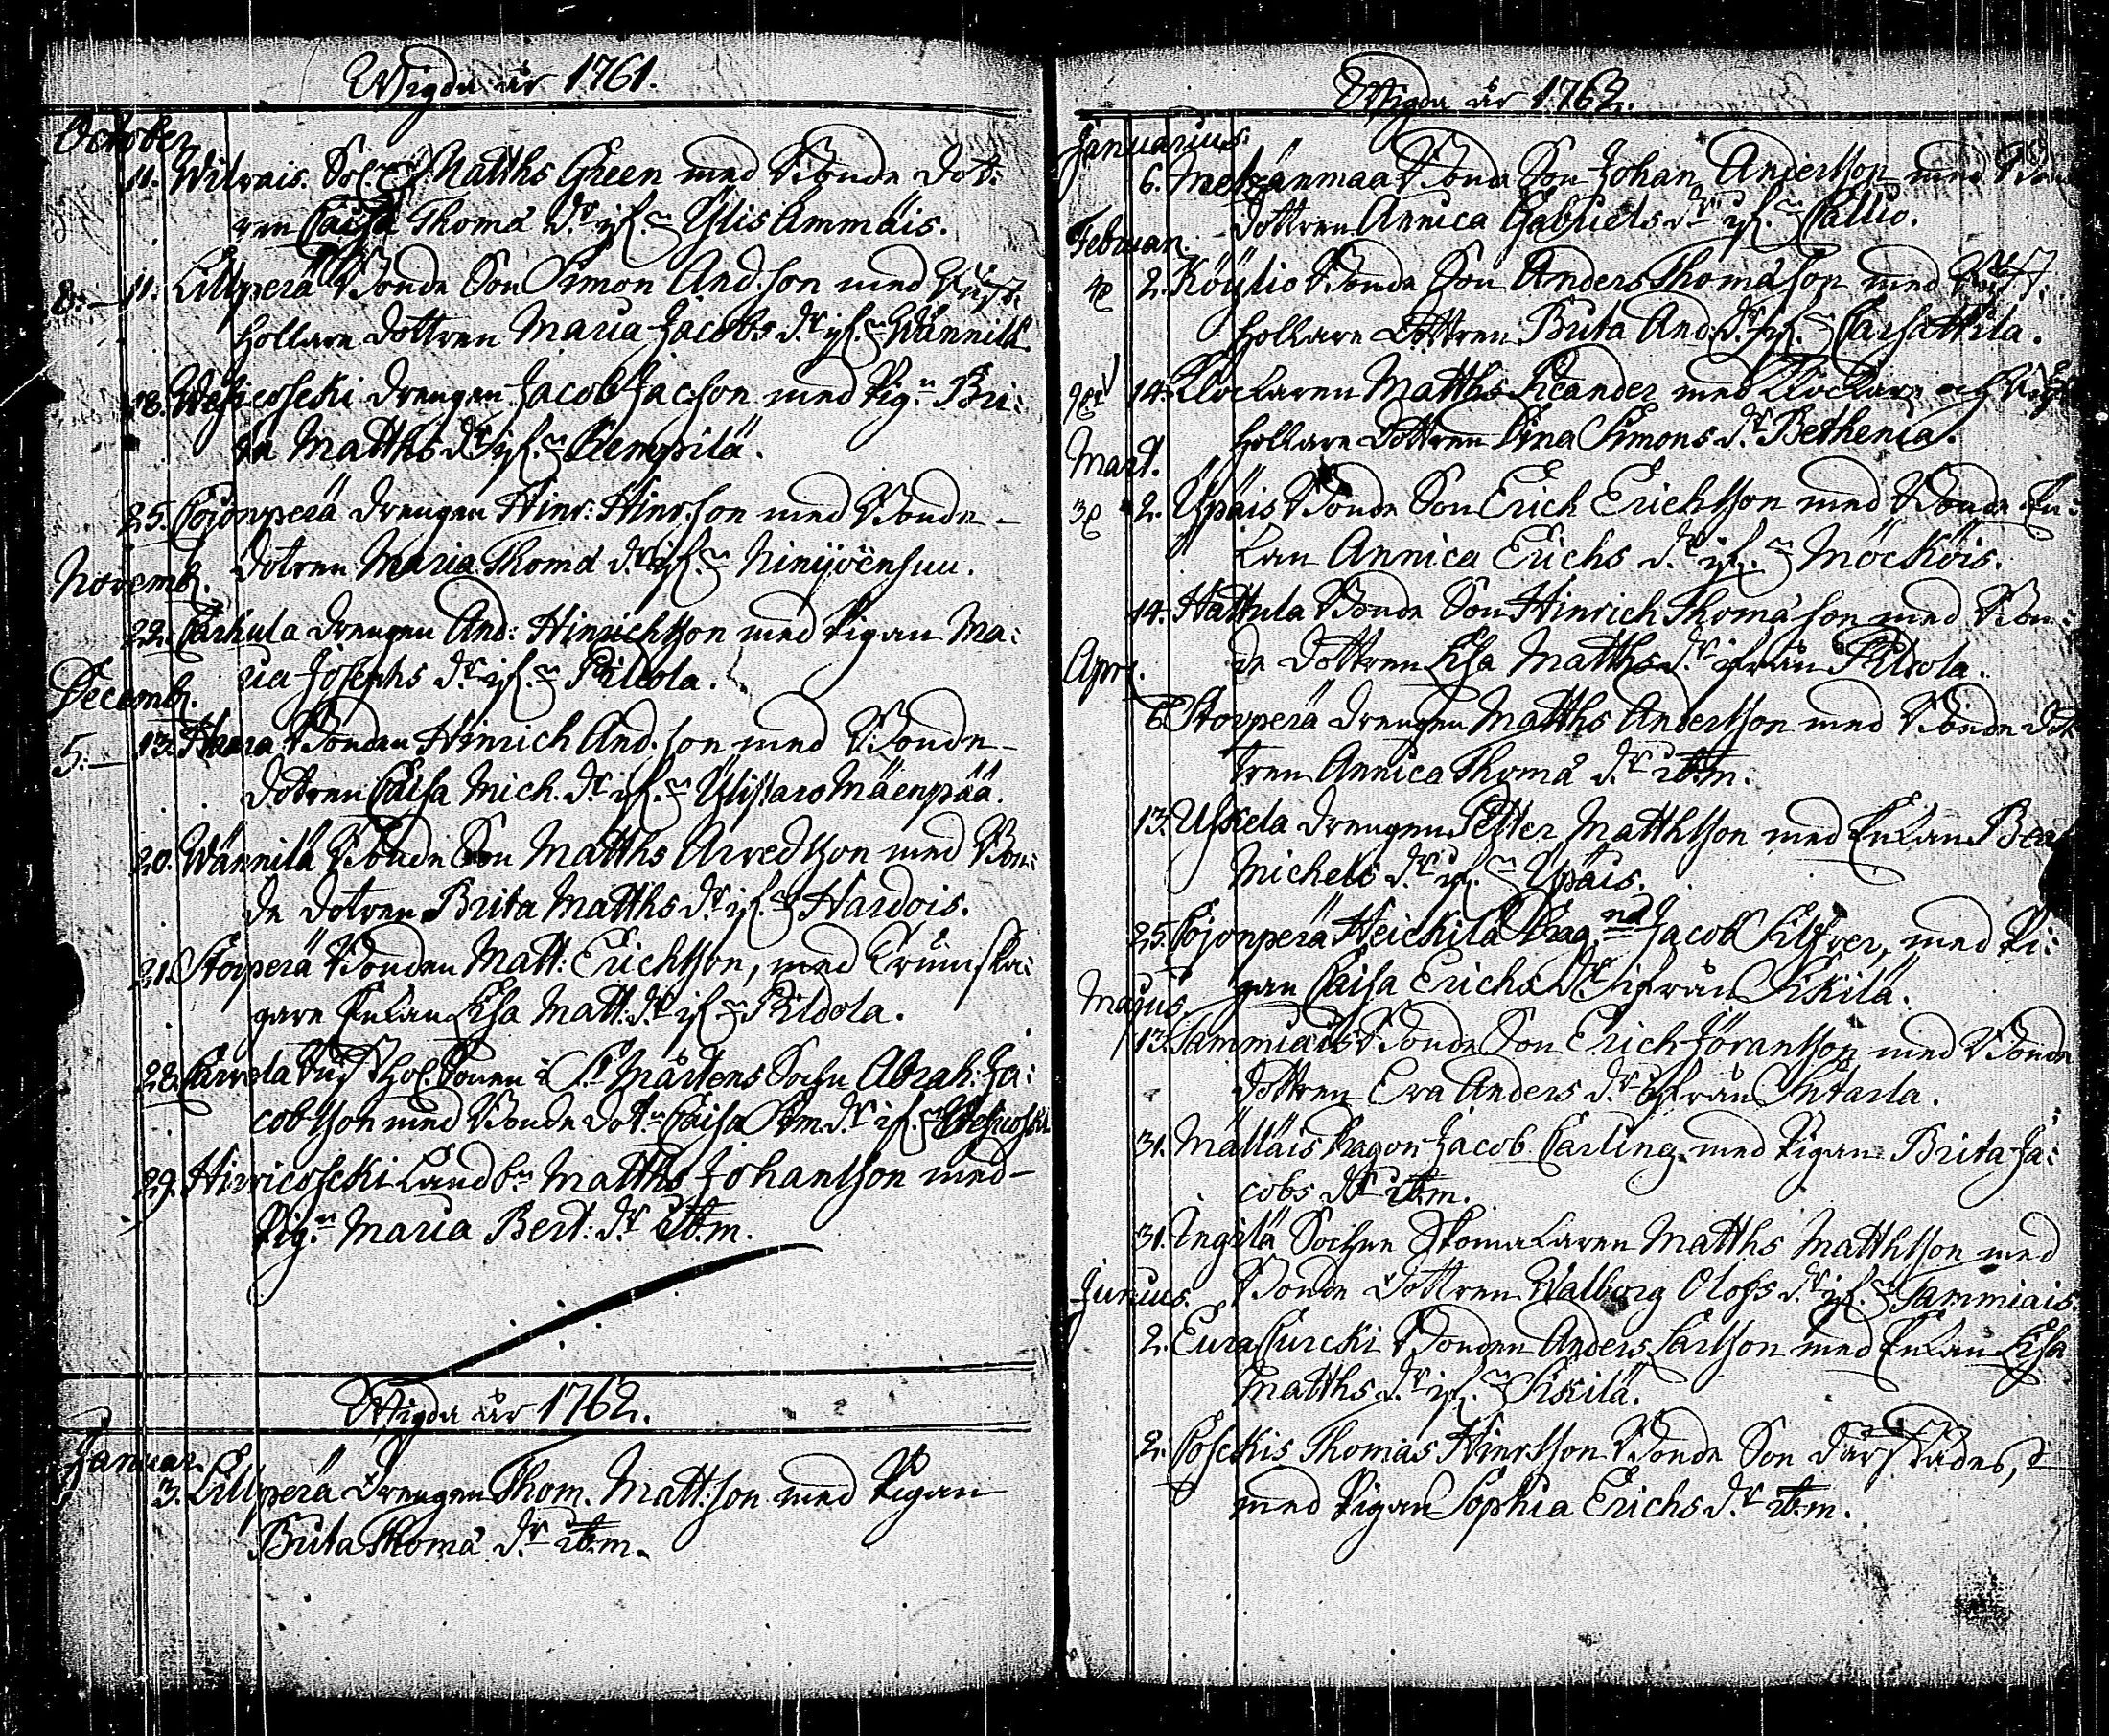 Wigda år 1761.
October
11. Wilvais. Matths Green med Bonde dot:
ren Caisa Thomæ d:r if:n Ylis Ammäis.
8:— 11. Lillperä Bonde Son Simon And:son med Rust:
hollare dottren Maria Jacobs d:r if:n Wännilä.
18. drengen Jacob Jacson med Pig:n Bri:
ta Matths d:r if:n Kempilä.
25. Cojonperä drengen Hinr: Hinr:son med Bonde-
dotren Maria Thomæ d:r if:n Ninijoensuu.
Novemb.
22. Carhula drengen And: Hinrichson med Pigan Ma:
ria Josephs d:r if:n Pildola.
Decemb.
5:— 13. Haara Bonden Hinrich And:son med Bonde-
dotren Caisa Mich. d:r if:n Ylistaro Mäenpää.
20. Wännilä Bonde Son Matths Arvedtson med Bon:
de dotren Brita Matths d:r if:n Hardois.
21. Storperä Bonden Matt: Erichtson, med
gare Enkan Lisa Matt: d:r if:n Pildola.
28. Carvela Rust hol. Sonen i S:t Mårtens Sochn Abrah: Ja:
cobtson med Bonde dot:n Caisa Sim. d:r if:n
29. Hirvicoscki Landb:n Matths Johantson med-
Pig:n Maria Bert: d:r ib:m.
Wigda år 1762.
Januar.
3. Lillperä drengen Thom. Matt:son med Pigan
Brita Thomæ d:r ib:m.
Wigda år 1762.
Januarius.
6. Metzänmaa Bonde Son Johan Andertson med Bonde
dottren Annica Gabriels d:r if:n Callio.
Februar.
2. Köylio Bonde Son Anders Thomæson med Rust:
hollare Dottren Brita And: d:r if:n Carhattila.
14. Klockaren Matths Licander med Klockare och Rust
hollare Dottren Stina Simons d:r Bethenia.
Mart.
2. Ypäis Bonde Son Erich Erichtson med Bonde En:
kan Annica Erichs d:r if:n Möcköis.
14. Hattula Bonde Son Hinrich Thomæson med Bon:
de dottren Lisa Matths d:r ifrån Pildola.
Apr.
6. Storperä drengen Matths Andertson med Bonde dot
tren Annica Thomæ d:r ib:m.
13. Uskela drengen Petter Matthtson med Enkan Beat
Michels d:r if:n Ypäis.
25. Cojonperä Heickilä Drag:n Jacob Silfver, med Pi:
gan Caisa Erichs D:r ifrån Kiskilä.
Majus.
13. Tammiais Bonde Son Erich Jörantson med Bonde
dottren Eva Anders d:r ifrån Sutarla.
31. Mälläis Dragon Jacob Carling med Pigan Brita Ja:
cobs d:r ib:m.
31. Ingilä Sochne Skomakaren Matths Matthtson med
Junius.
Bonde Dottren Walborg Olofs d:r if:n Tammiais.
2. Eura Curcki Bonden Anders Carlson med Enkan Lisa
Matths d:r if:n Kiskilä.
2. Coskis Thomas Hinrtson Bonde Son därstädes,
med Pigan Sophia Erichs d:r ib:m.